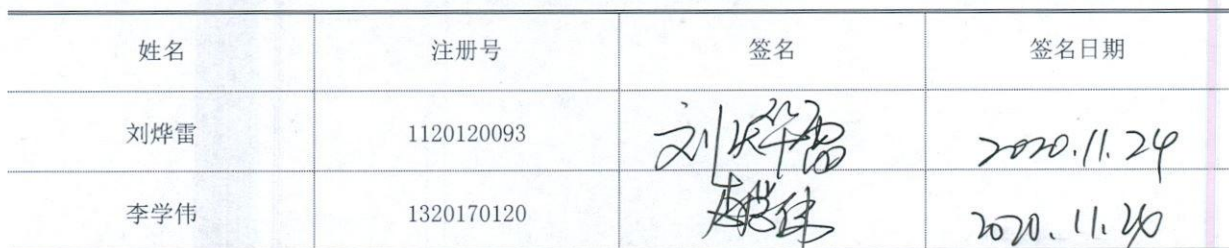 姓名 注册号 签名 签名日期
刘烨雷 1120120093 刘烨雷 2020.11.24
李学伟 1320170120 李学伟 2020.11.26